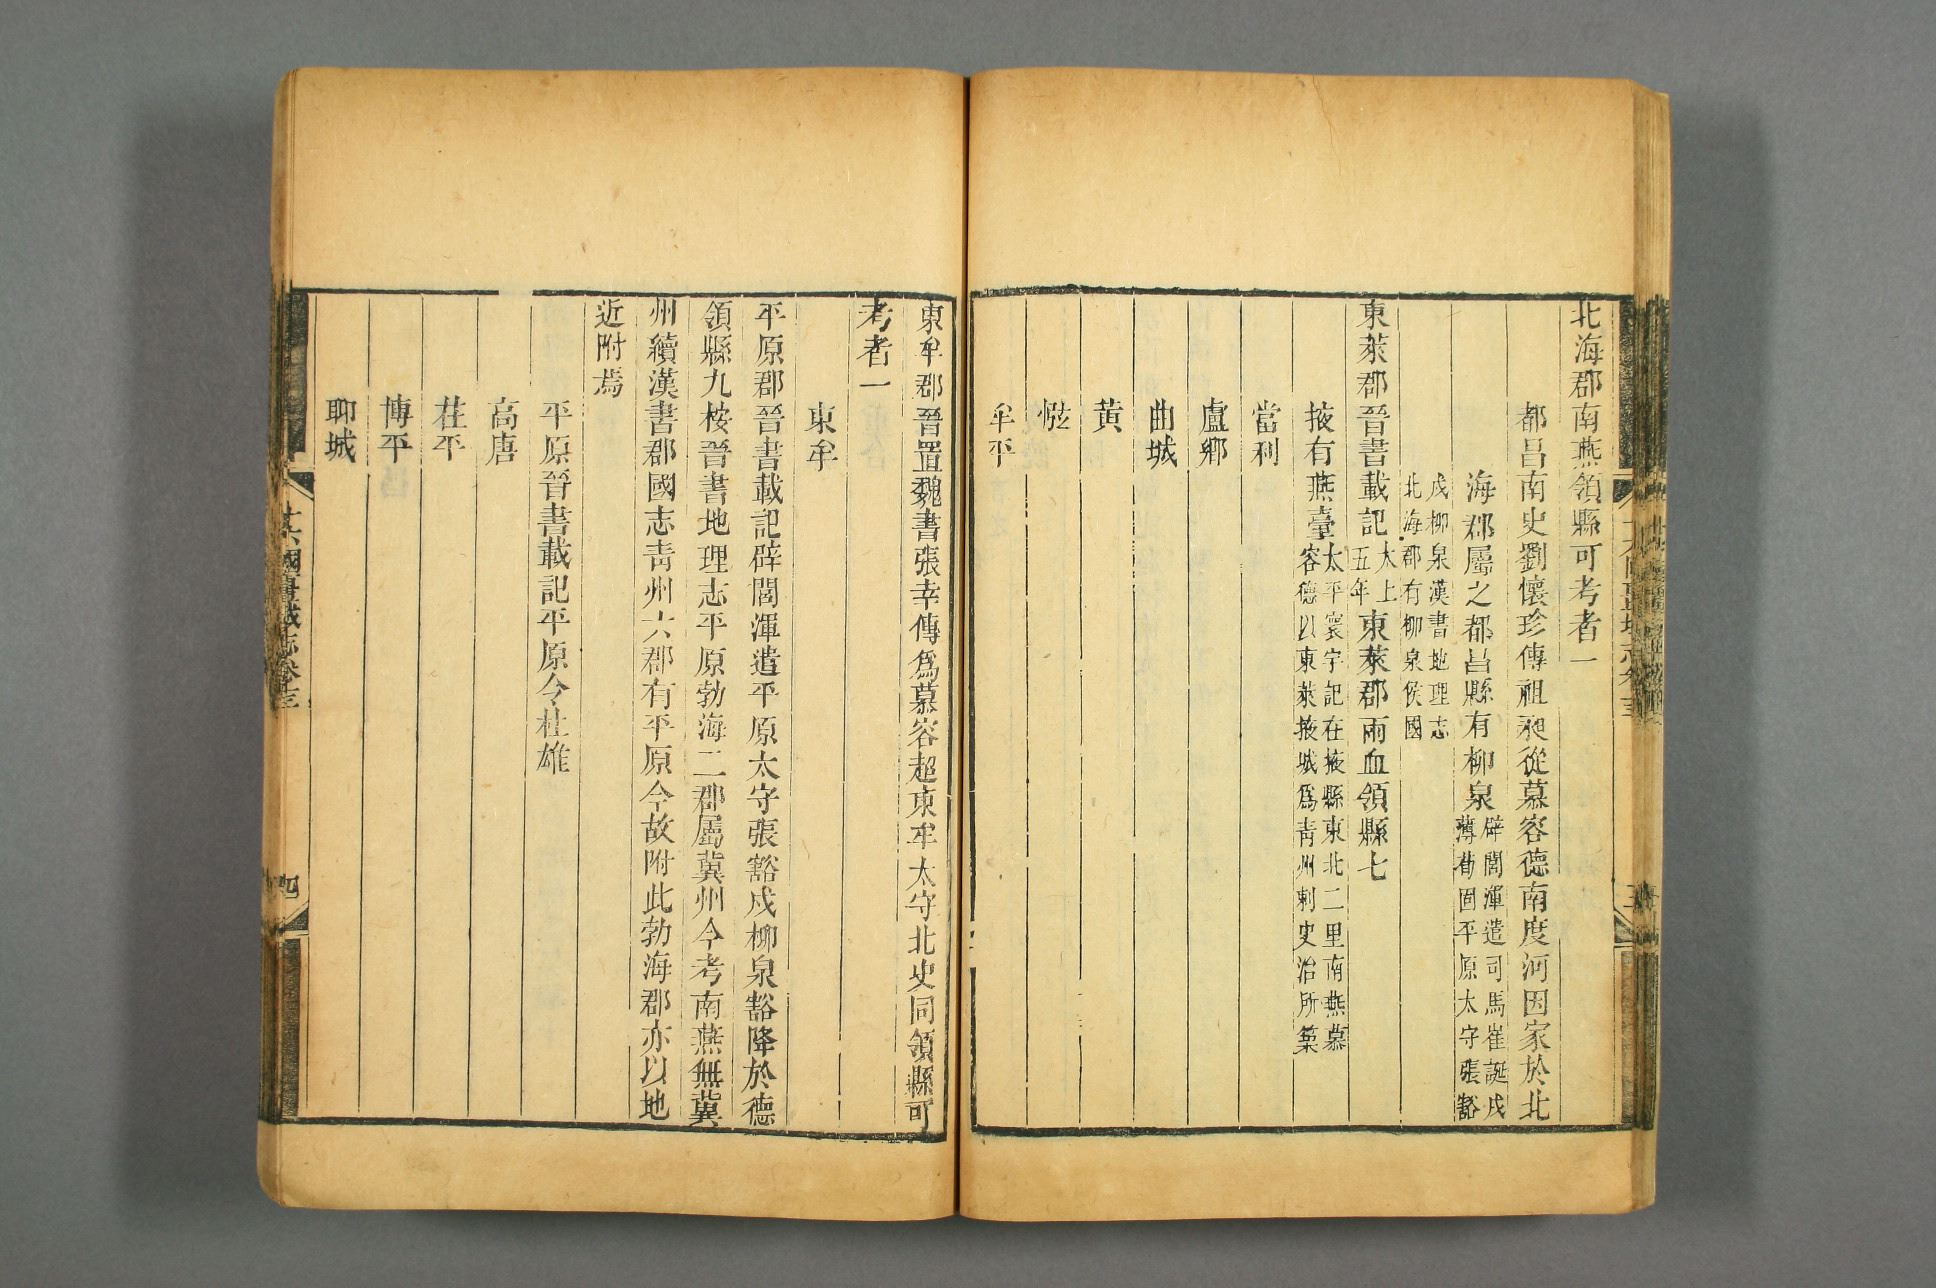 北海郡南燕領縣可考者一
都昌南史劉懷珍傳祖昶從慕容德南度河因家於北
海郡屬之都昌縣有柳泉辟閭渾遣司馬崔誕戍
薄荀固平原太守張豁
戍柳泉漢書地理志
北海郡有柳泉侯國
東萊郡晉書載記太上
五年東萊郡雨血領縣七
掖有燕臺太平寰宇記在掖縣東北二里南燕慕
容德以東萊掖城爲青州刺史治所築
當利
盧鄉
曲城
黃
㡉
牟平
東牟郡晉置魏書張幸傳爲慕容超東牟太守北史同領縣可
考者一
東牟
平原郡晉書載記辟閭渾遣平原太守張豁戍柳泉豁降於德
領縣九桉晉書地理志平原勃海二郡屬冀州今考南燕無冀
州續漢書郡國志青州六郡有平原今故附此勃海郡亦以地
近附焉
平原晉書載記平原令杜雄
高唐
茌平
博平
聊城
十六國疆域志卷十三
四